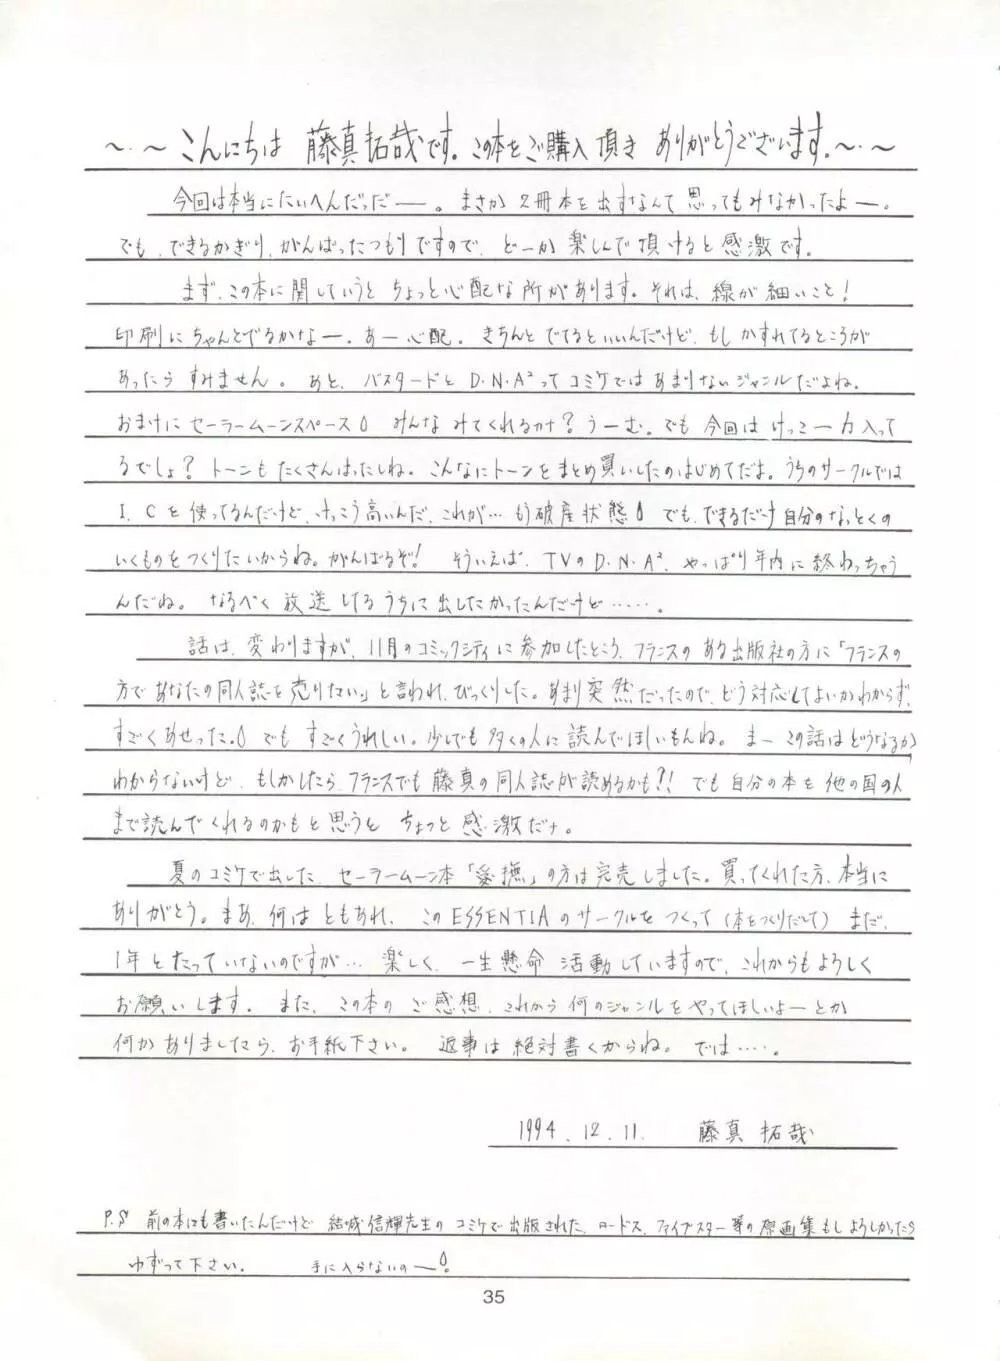 ～・～こんにちは 藤真拓哉です。この本をご購入頂き ありがとうございます。～・～
今回は本当にたいへんだっだー。まさか2冊本を出すなんて思ってもみなかったよー。
でも、できるかぎり、がんばったつもりですので、どーか楽しんで頂けると感激です。
まず、この本に関していうと ちょっと心配な所があります。それは、線が細いこと!
印刷にちゃんとでるかなー。あー心配。きちんと でてるといいんだけど、もし かすれてるところが
あったら すみません。あと、バスタードと D・N・A²って コミケでは あまりないジャンルだよね。
おまけに セーラームーンスペース みんな みてくれるカナ? うーむ。でも 今回は けっこー力入って
るでしょ? トーンも たくさんはったしね。こんなにトーンを まとめ買いしたの はじめてだよ。うちのサークルでは
I.Cを 使ってるんだけど、けっこう高いんだ、これが… もう破産状態 でも、できるだけ 自分のなっとくの
いくものを つくりたいからね。がんばるぞ! そういえば、TVの D・N・A²、やっぱり年内に終わっちゃう
んだね。なるべく 放送してるうちに 出したかったんだけど……。
話は、変わりますが、11月のコミックシティに参加したところ、フランスの ある出版社の方に「フランスの
方で あなたの同人誌を売りたい」と言われ、びっくりした。あまり突然だったので、どう対応してよいかわからず、
すごくあせった。 でも すごくうれしい。少しでも多くの人に読んでほしいもんね。まー この話はどうなるか
わからないけど、もしかしたら、フランスでも 藤真の同人誌が読めるかも?! でも自分の本を 他の国の人
まで読んでくれるのかもと思うと ちょっと 感激だナ。
夏のコミケで出した、セーラームーン本「愛撫」の方は完売しました。買ってくれた方、本当に
ありがとう。まあ、何は ともあれ、このESSENTIAのサークルを つくって(本をつくりだして)まだ、
1年と たっていないのですが… 楽しく、一生懸命 活動していますので、これからもよろしく
お願いします。また、この本の ご感想、これから 何のジャンルを やってほしいよーとか
何か ありましたら、お手紙下さい。返事は絶対書くからね。では……。
1994.12.11. 藤真 拓哉
P.S 前の本にも書いたんだけど 結城信輝先生の コミケで出版された、ロードス、ファイブスター 等の原画集もしよろしかったら
ゆずって下さい。 手に入らないのー!
35